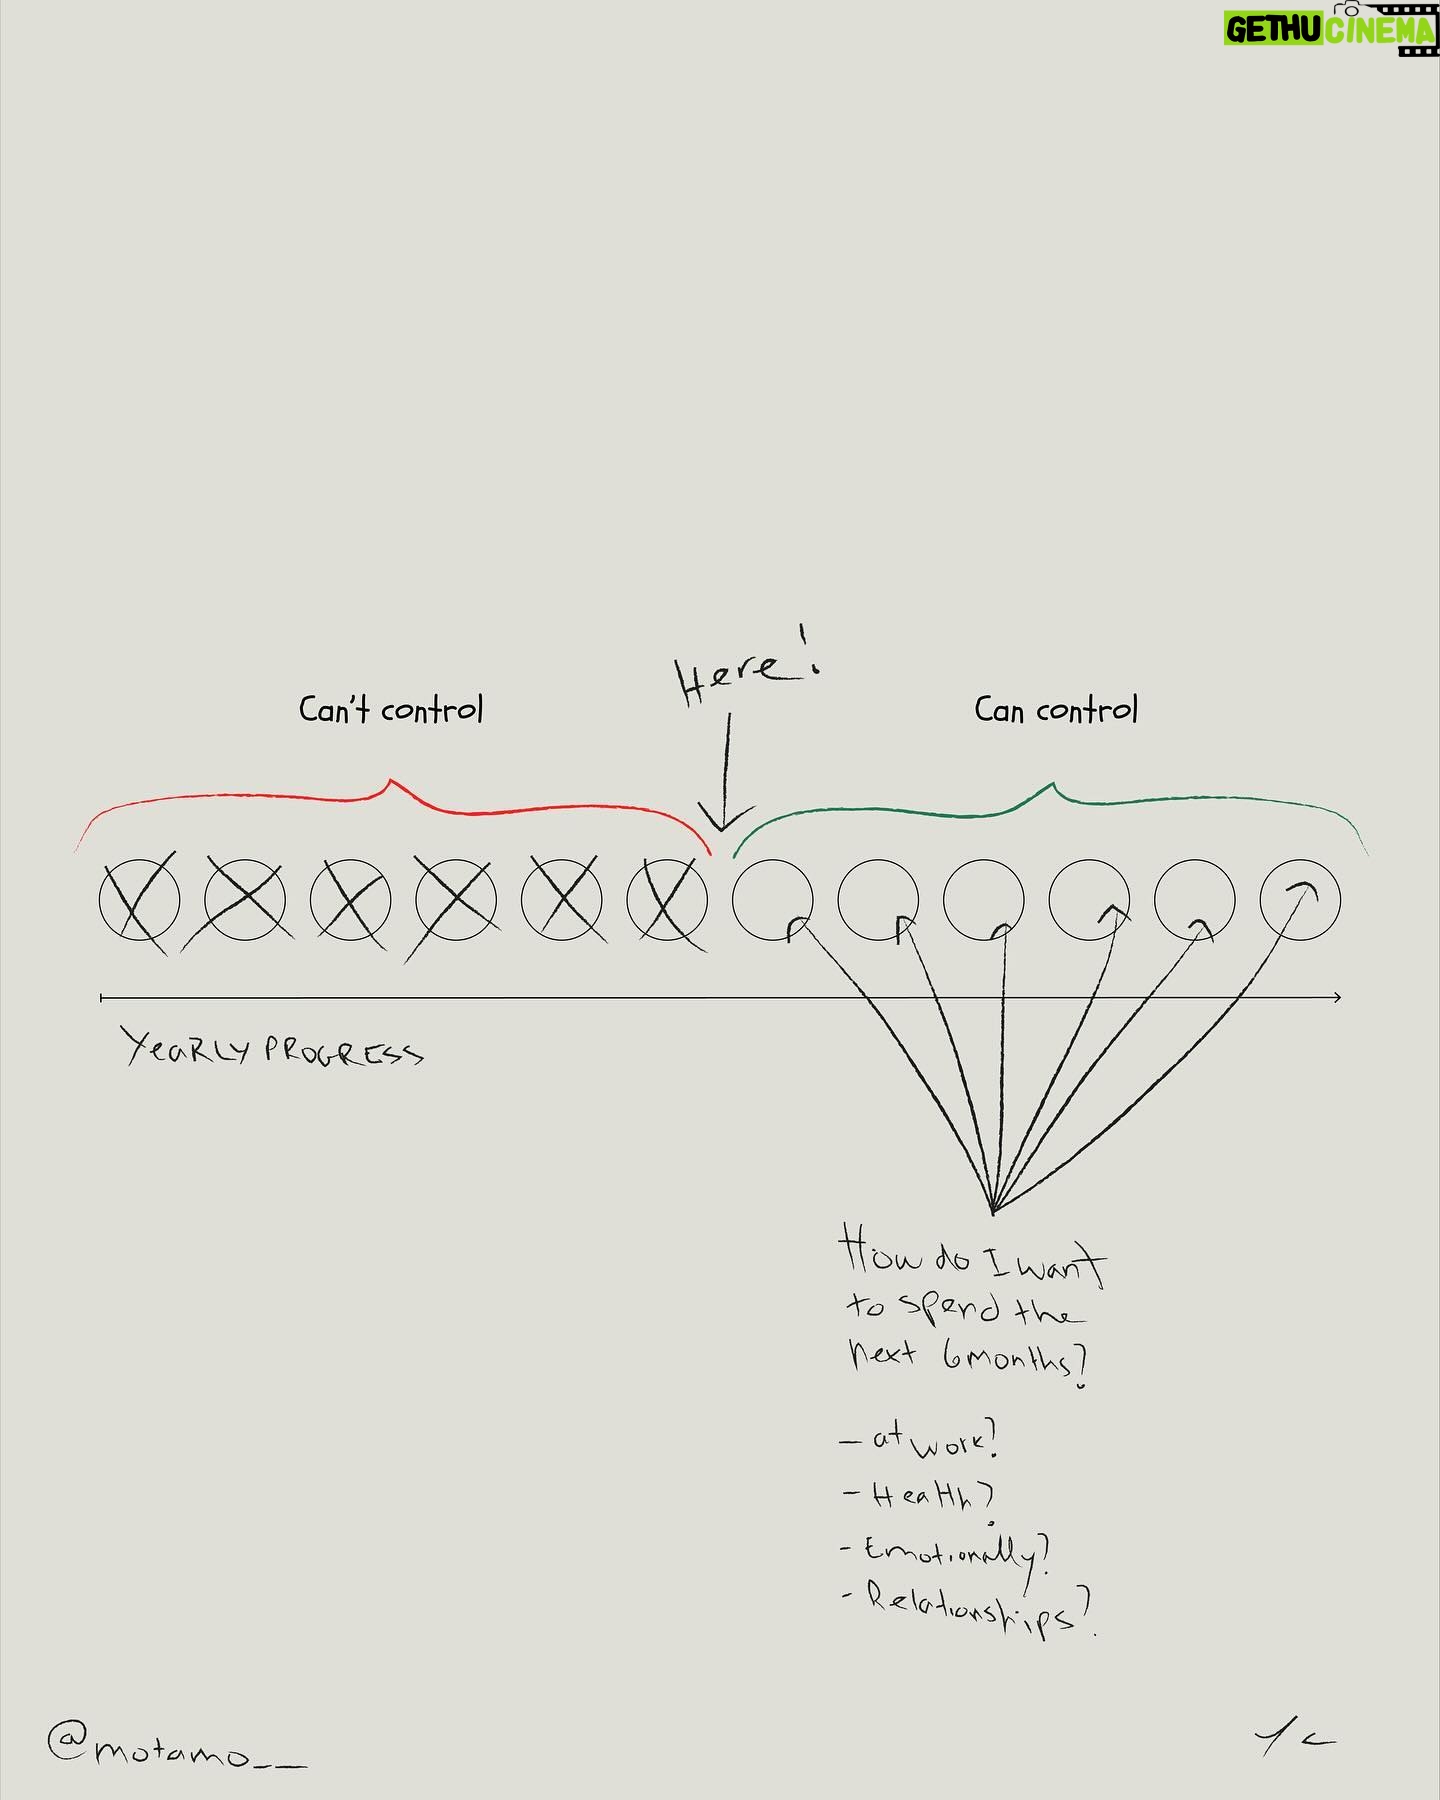 GETHUCINEMA
Here!
Can't control
Can control
YeaRLY PROGRESS
How do I want
to spend the
next 6 months?
- at work?
- Health?
- Emotionally?
- Relationships?
@motamo__